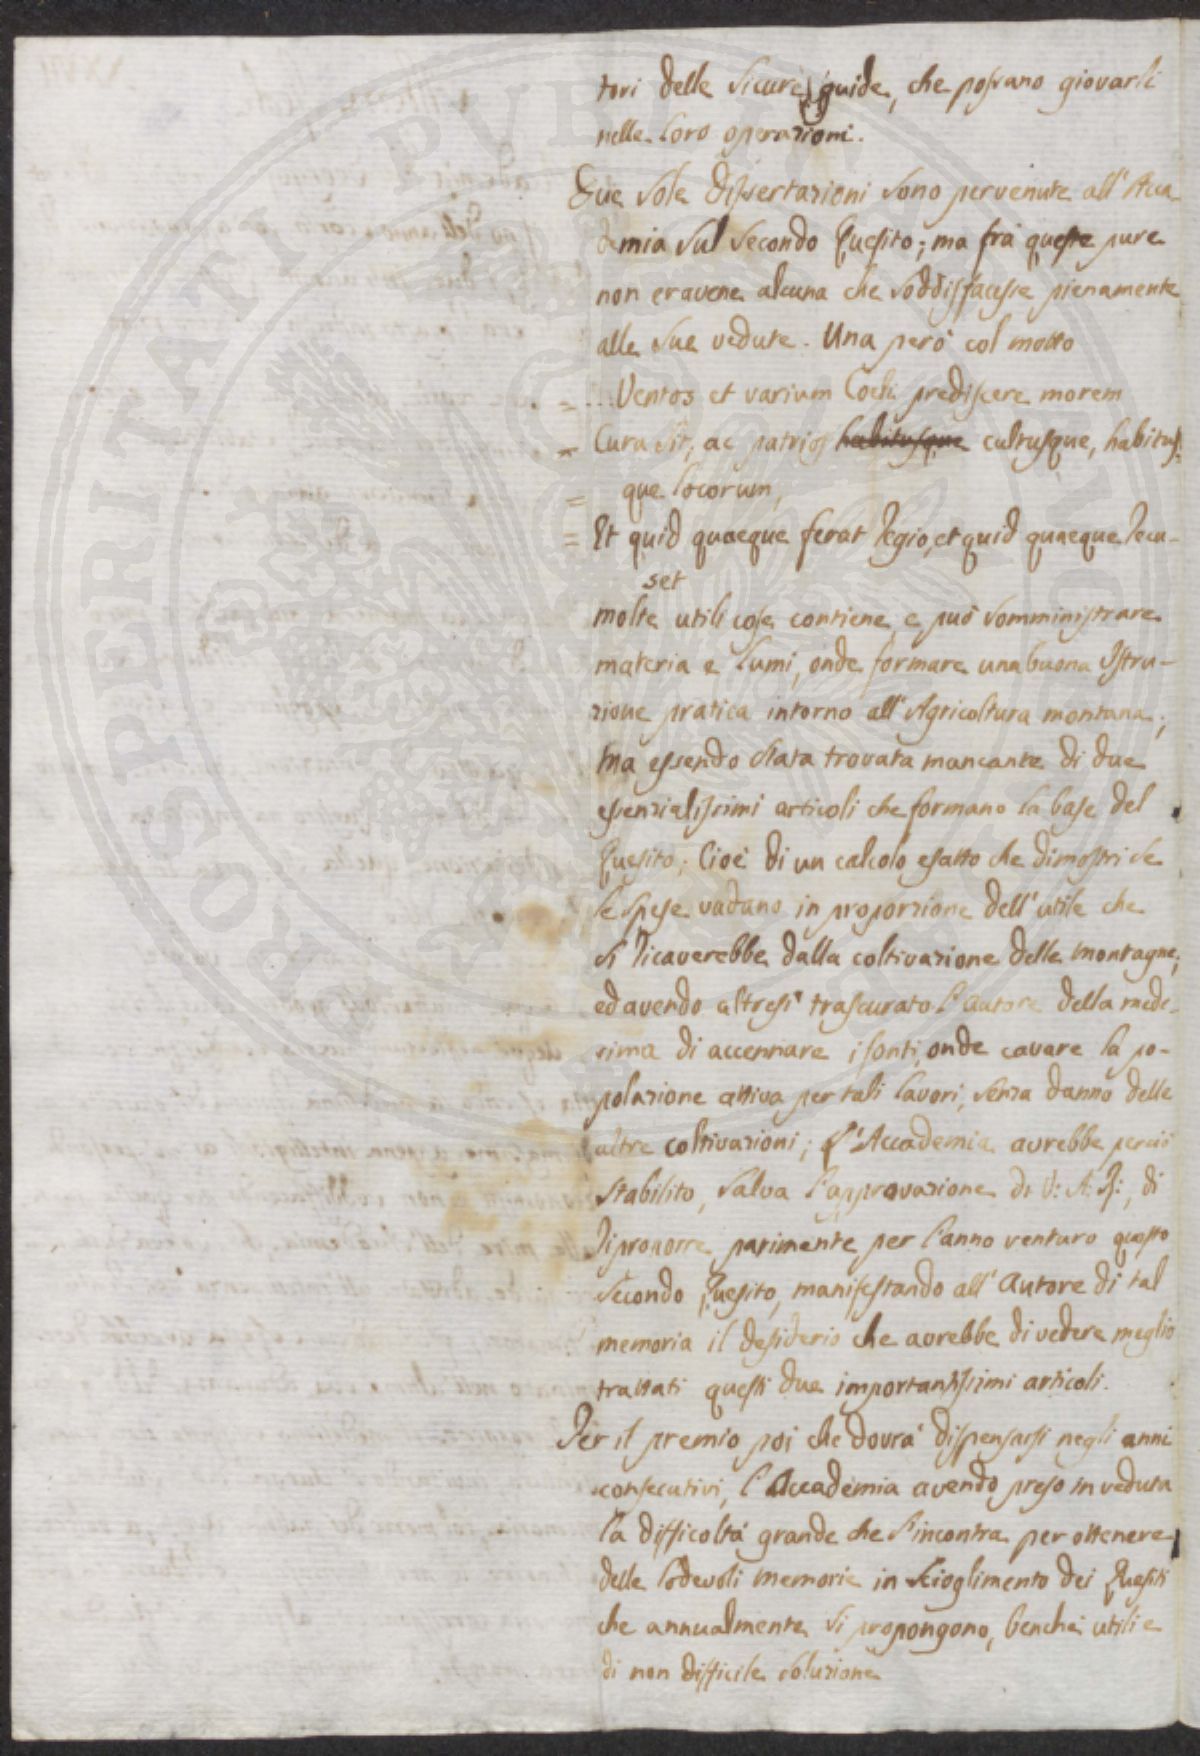 tori delle sicure guide, che possano giovarli
nelle loro operazioni.
Due sole dissertazioni sono pervenute all'Acca-
demia sul secondo Quesito; ma frà queste pure
non eravene alcuna che soddisfacesse pienamente
alle sue vedute. Una però col motto
= ... Ventos et varium Coeli prediscere morem
= Cura sit, ac patrios habitusque cultusque, habitus-
= que locorum,
= Et quid quaeque ferat Regio, et quid quaeque recu-
set
molte utili cose contiene, e può somministrare
materia e lumi, onde formare una buona Istru-
zione pratica intorno all'Agricoltura montana;
Ma essendo stata trovata mancante di due
essenzialissimi articoli che formano la base del
Quesito; Cioè di un calcolo esatto che dimostri se
le spese vadano in proporzione dell'utile che
si Ricaverebbe dalla coltivazione delle montagne;
ed avendo altresì trascurato l'autore della mede-
sima di accennare i fonti, onde cavare la po-
polazione attiva per tali lavori, senza danno delle
altre coltivazioni; L'Accademia avrebbe perciò
stabilito, salva l'approvazione di V: A: R:, di
Riproporre parimente per l'anno venturo questo
secondo Quesito, manifestando all'Autore di tal
memoria il desiderio che avrebbe di vedere meglio
trattati questi due importantissimi articoli.
Per il premio poi che dovrà dispensarsi negli anni
consecutivi, l'Accademia avendo preso in veduta
la difficoltà grande che s'incontra per ottenere
delle lodevoli memorie in scioglimento dei Quesiti
che annualmente si propongono, benchè utili e
di non difficile soluzione
PROSPERITATI PUBLICAE